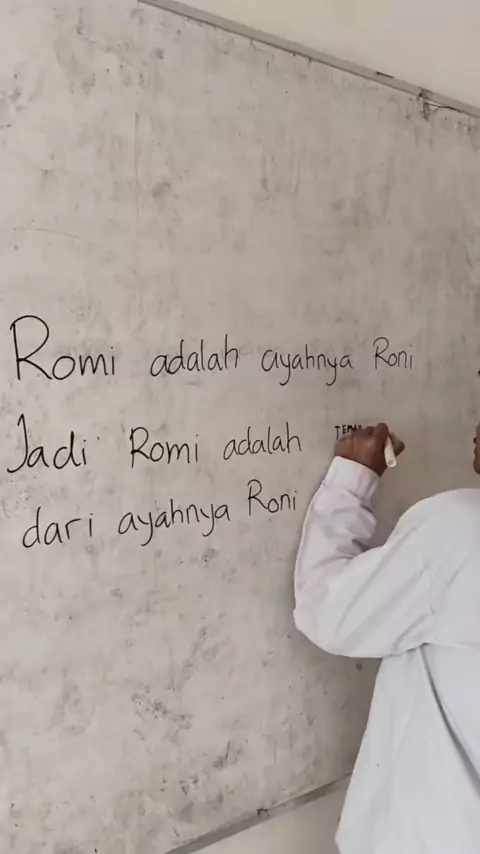 Romi adalah ayahnya Roni
Jadi Romi adalah
dari ayahnya Roni